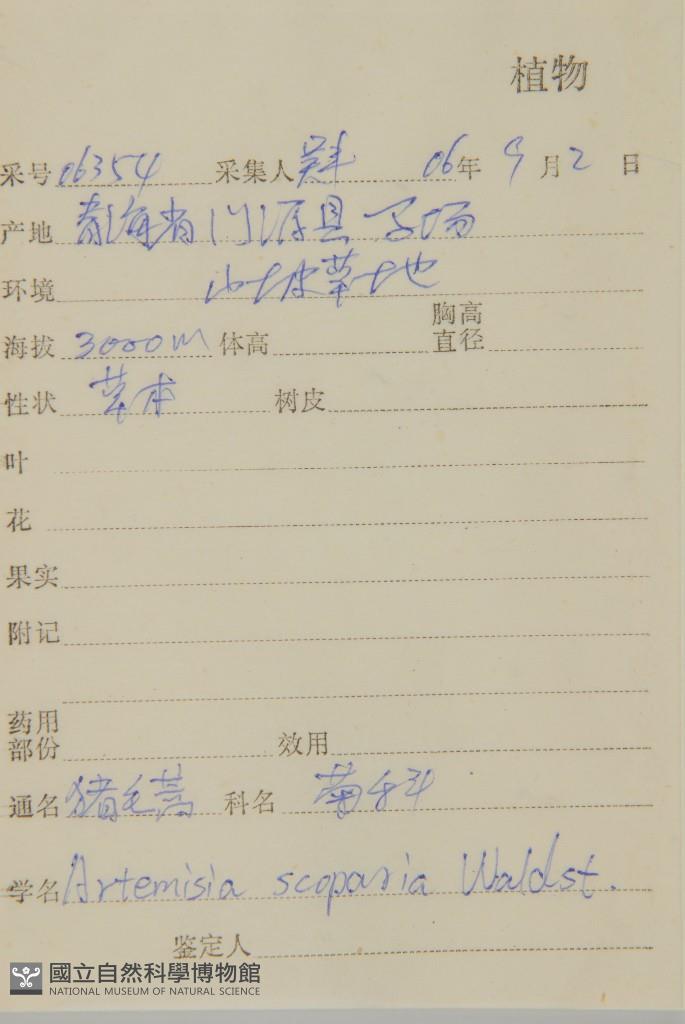 植物
采号 06354 采集人 吴丰 06年 9月2日
产地 青海省门源县 马场
环境 山坡草地
海拔 3000m 体高 胸高直径
性状 草本 树皮
叶
花
果实
附记
药用部份 效用
通名 猪毛蒿 科名 菊科
学名 Artemisia scoparia Waldst.
鉴定人
國立自然科學博物館
NATIONAL MUSEUM OF NATURAL SCIENCE